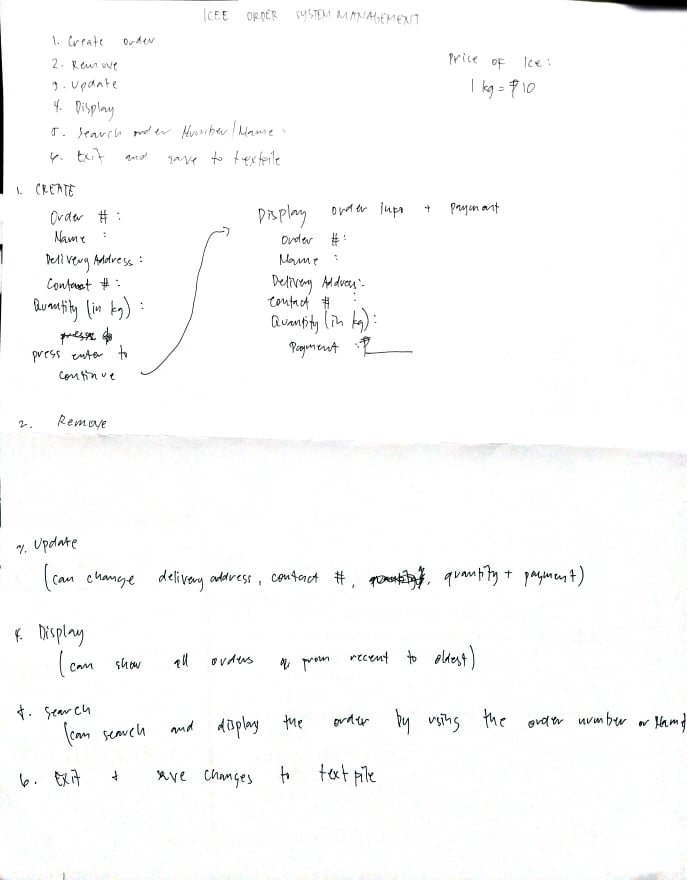 ICEE ORDER SYSTEM MANAGEMENT
1. Create order
2. Remove
3. Update
4. Display
5. Search order Number/Name.
6. Exit and save to textfile
Price of Ice:
1 kg = ₱10
1. CREATE
Order # :
Name :
Delivery Address :
Contact # :
Quantity (in kg) :
press enter to
continue
Display order Info + Payment
Order # :
Name :
Delivery Address :
Contact # :
Quantity (in kg) :
Payment : ₱
2. Remove
3. Update
(can change delivery address, contact #, quantity + payment)
4. Display
(can show all orders from recent to oldest)
5. Search
(can search and display the order by using the order number or Name
6. Exit + save changes to text file